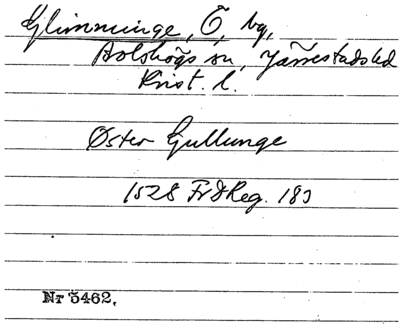 Glimminge, Ö, by,
Bolshögs sn, Järrestads hd
Krist. l.
Øster Gyllunge
1528 Fr d Reg. 183
Nr 5462.